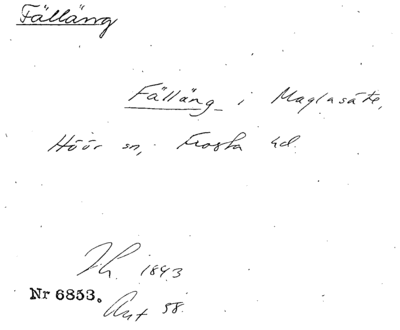 Fälläng
Fälläng i Maglasäte,
Höör sn, Frosta hd.
1843
Nr 6853.
58.